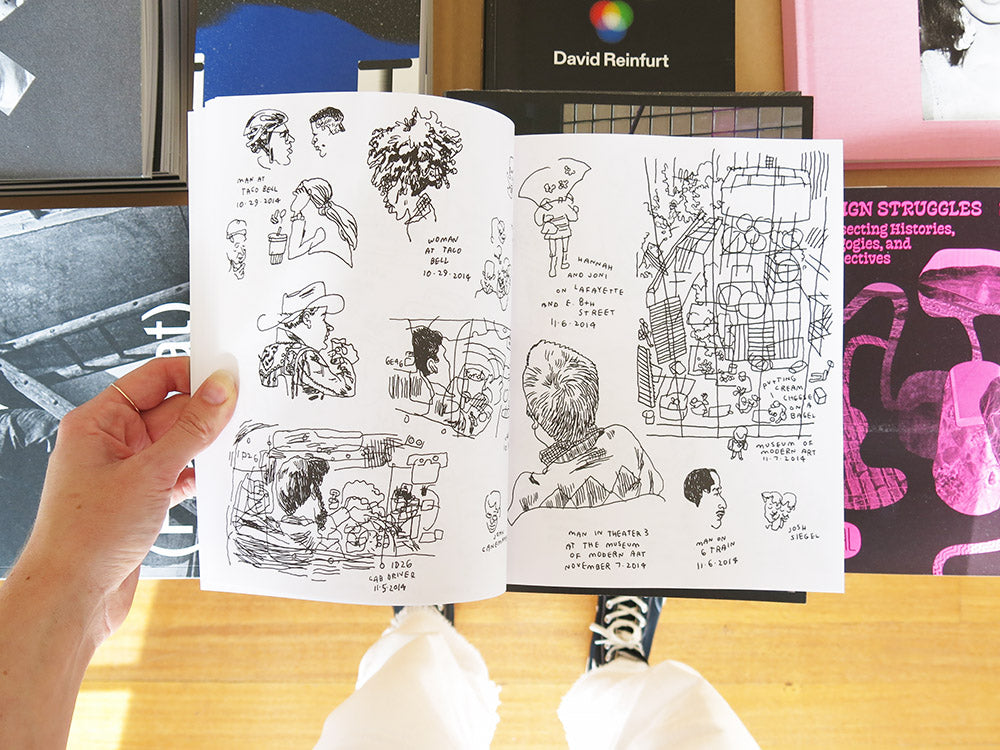 David Reinfurt
MAN AT
TACO BELL
10·29·2014
WOMAN
AT TACO
BELL
10·29·2014
1D26
1D26
CAB DRIVER
11·5·2014
HANNAH
AND JONI
ON LAFAYETTE
AND E. 8TH
STREET
11·6·2014
PUTTING
CREAM
CHEESE
ON A
BAGEL
MUSEUM OF
MODERN ART
11·7·2014
MAN IN THEATER 3
AT THE MUSEUM
OF MODERN ART
NOVEMBER 7·2014
MAN ON
6 TRAIN
11·6·2014
JOSH
SIEGEL
IGN STRUGGLES
secting Histories,
gogies, and
ectives